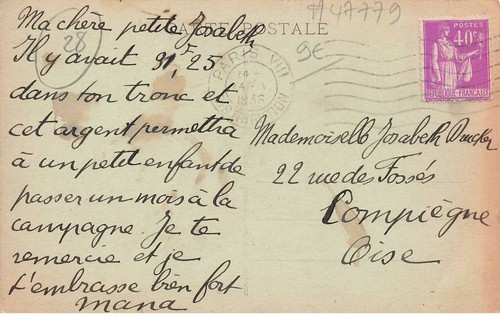 #47779
9€
28
CARTE POSTALE
Ma chère petite Josabeth
Il y avait 91F25
dans ton tronc et
cet argent permettra
à un petit enfant de
passer un mois à la
campagne. Je te
remercie et je
t'embrasse bien fort
mana
PARIS VIII
1936
POSTES
40c
REPUBLIQUE-FRANÇAISE
Mademoiselle Josabeth
22 rue des Fossés
Compiègne
Oise